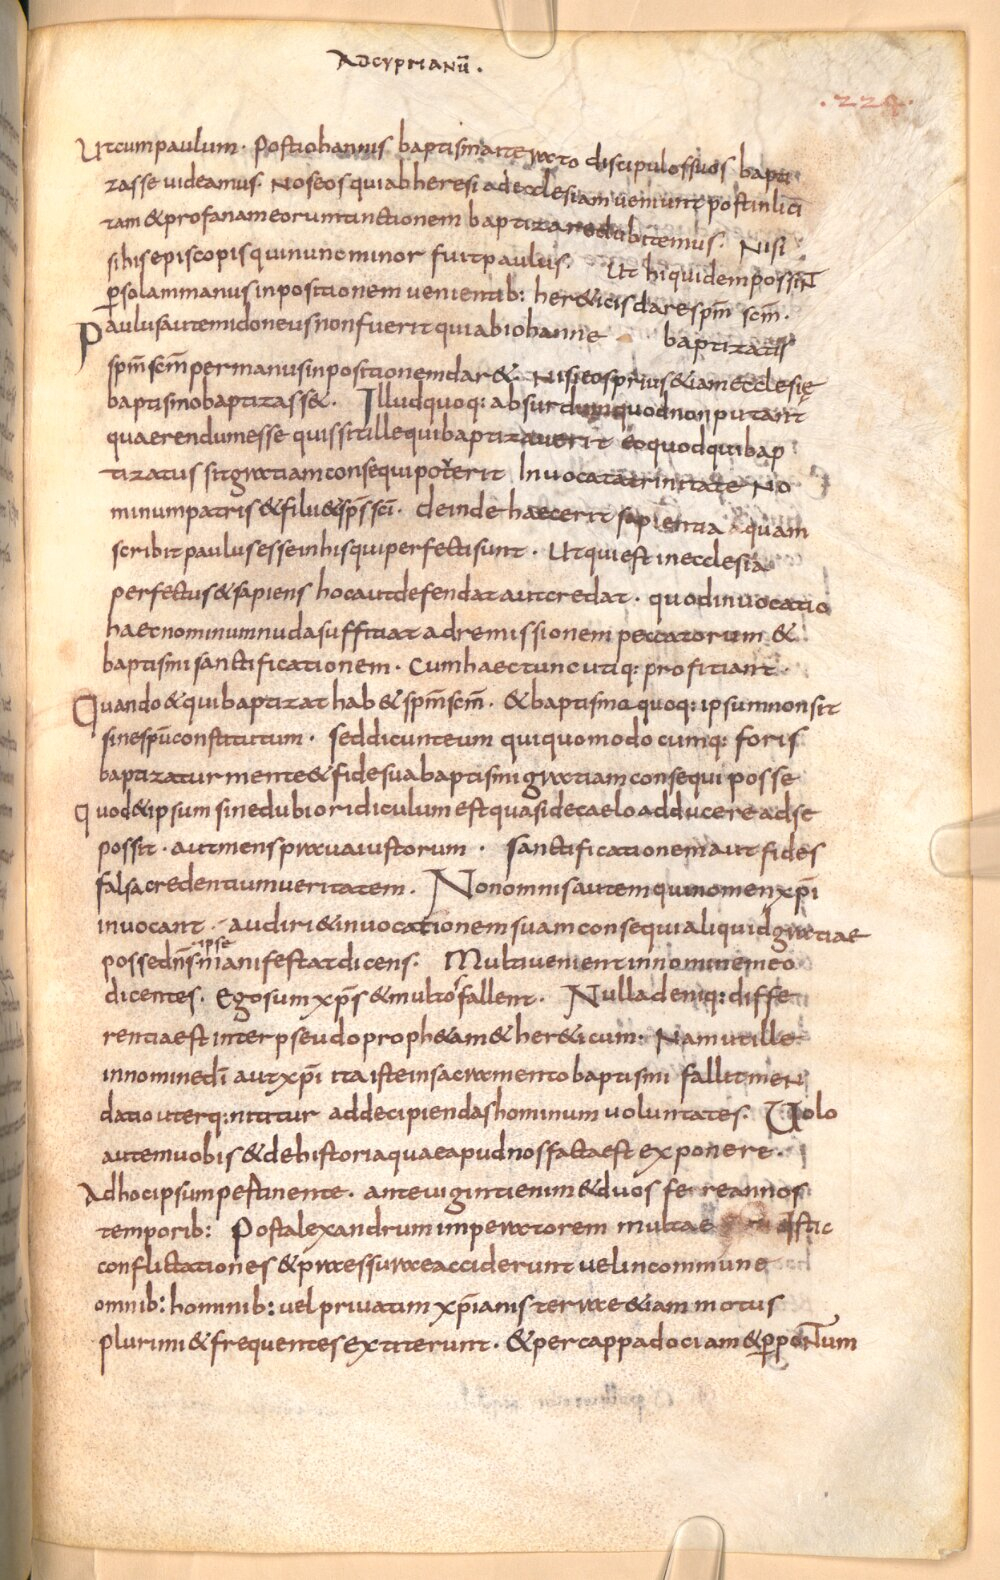 ADCYPRIANŪ.
.224.
Utcumpaulum. Postiohannis baptismaiterato discipulossuos bapti
zasse uideamus. Noseosquiabheresi adecclesiam ueniunt postinlici
tam &profanam eorumtinctionem baptizaredubitemus. Nisi
sihisepiscopisquinunc minor fuit paulus. Ut hiquidempossiNT
p̲solammanusinpositionem uenientib: her&icisdarespm̄ scm̄.
Paulusautemidoneusnonfuerit quiabiohanne baptizatis
spm̄scm̄permanusinpositionemdar& Nisieosprius&iamecclesię
baptismobaptizass&. Illudquoq: absurdumquodnonputant
quaerendumesse quissitillequibaptizauerit eoquodquibap
tizatus sitgratiamconsequipoterit Inuocatatrinitate No
minumpatris&filii&sp̄ssc̄i. deindehaecerit sapientia quam
scribitpaulusesseinhisquiperfectisunt. Utquiestinecclesia
perfectus&sapiens hocautdefendatautcredat. quodinuocatio
haecnominumnudasufficiatadremissionem peccatorum &
baptismisanctificationem. Cumhaectuncutiq: proficiant
Quando&quibaptizat hab&spm̄scm̄. &baptisma quoq: ipsumnonsit
sinespūconstitutum. seddicunteum quiquomodocumq: foris
baptizaturmente&fidesuabaptismigratiamconsequiposse
Quod&ipsumsinedubioridiculumestquasidecaeloadducereadse
possit. autmenspravaiustorum. sanctificationemaut fides
falsacredentiumueritatem. Nonomnisautemquinomenxp̄i
inuocant. audiri&inuocationemsuamconsequialiquidgratiae
possedn̄s ipse manifestatdicens. Multiuenientinnominemeo
dicentes. Egosumxp̄s&multosfallent. Nulladeniq: diffe
rentiaestinterpseudoproph&am&her&icum. Namutille
innominedī autxp̄i itaisteinsacramentobaptismi fallitmeN
datiouterq: nititur addecipiendashominumuoluntates. Uolo
autemuobis&dehistoriaquaeapudnosfactaest exponere.
Adhocipsumpestinente. anteuigintienim&duos fereannos
temporib: Postalexandrumimperatorem multae istic
conflictationes&praessuraeacciderunt uelincommune
omnib: hominib: uelpriuatim xp̄ianis terrae&iammotus
plurimi&frequentesextiterunt. &percappadociam&p̲poNTum